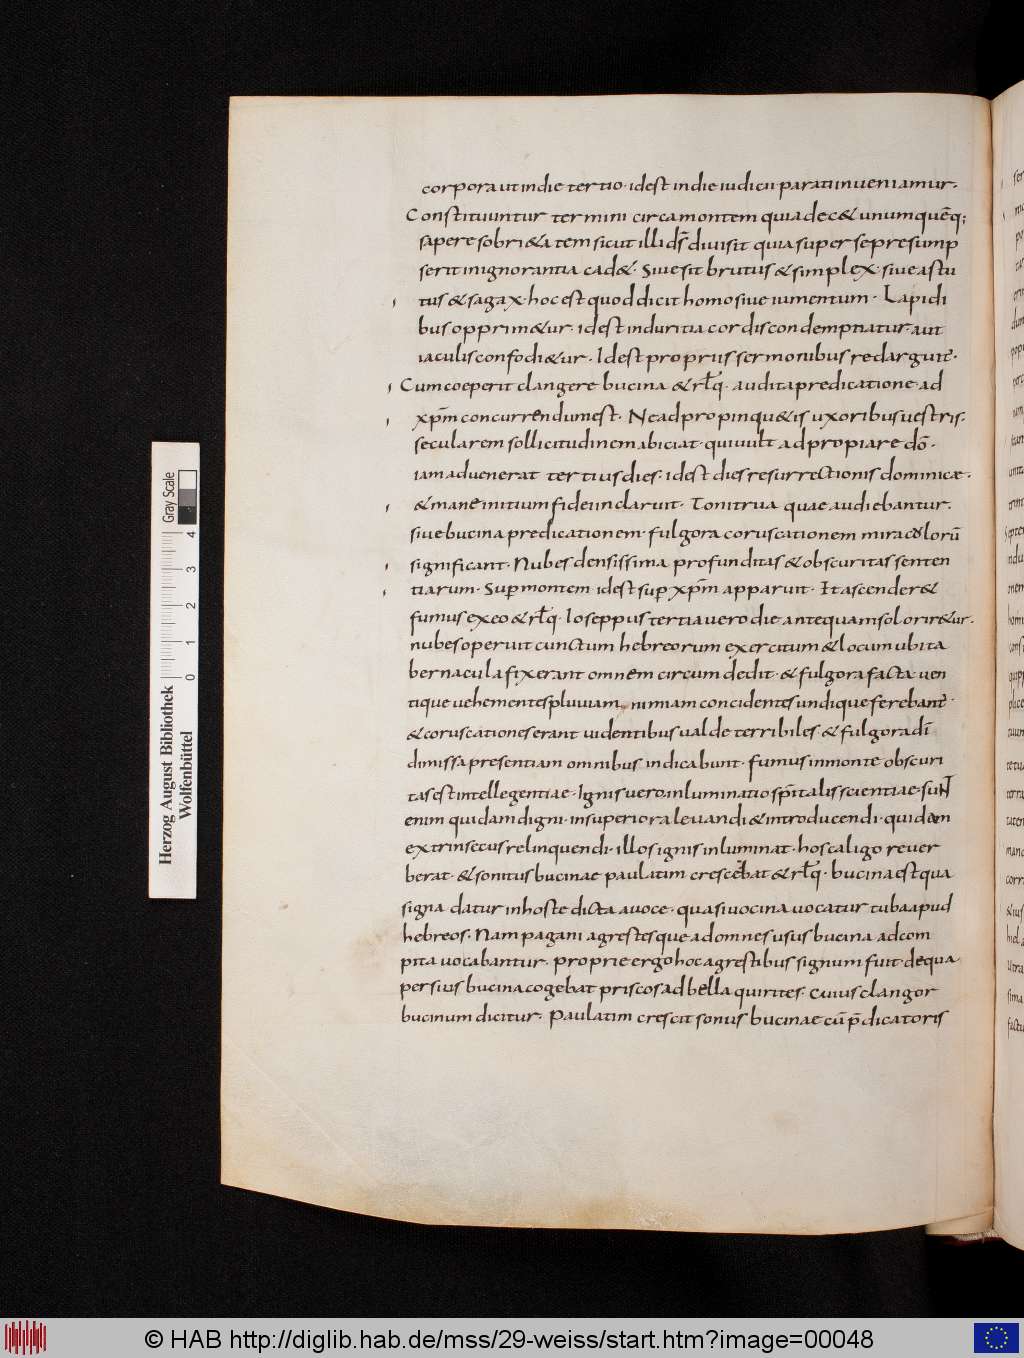 corpora ut in die tertio· idest in die iudicii parati inueniamur·
Constituuntur termini circa montem quia dec& unumquēq;
sapere sobri&atem sicut illi ds̄ diuisit quia super se presump
serit in ignorantia cad&· Siue sit brutus & simplex· siue astu
tus & sagax· hoc est quod dicit homo siue iumentum· Lapidi
bus opprim&ur· idest in duritia cordis condemptiatur aut
iaculis confodi&ur· Idest propriis sermonibus redarguit·
Cum coeperit clangere bucina & rlq· audita predicatione ad
xpm̄ concurrendum est· Ne adpropinqu&is uxoribus uestris·
secularem sollicitudinem abiciat· qui uult adpropiare dō·
iam aduenerat tertius dies· idest dies resurrectionis dominicae·
& mane initium fidei inclaruit· Tonitrua quae audiebantur·
siue bucina predicationem· fulgora coruscationem miraculorū
significant· Nubes densissima profunditas & obscuritas senten
tiarum· Sup montem idest sup xpm̄ apparuit· Et ascender&
fumus ex eo & rlq· Ioseppus tertia uero die antequam sol orir&ur·
nubes operuit cunctum hebreorum exercitum & locum ubi ta
bernacula fixerant omnem circum dedit· & fulgora facta uen
tique uehementes pluuiam nimiam concidentes undique ferebant·
& coruscationes erant uidentibus ualde terribiles· & fulgora dī
dimissa presentiam omnibus indicabunt· fumus in monte obscuri
tas est intellegentiae· Ignis uero inluminatio spītalis scientiae· sunt
enim quidam digni· in superiora leuandi & introducendi· quidam
extrinsecus relinquendi· illos ignis inluminat· hos caligo reuer
berat· & sonitus bucinae paulatim crescebat & rlq· bucina est qua
signa datur in hoste dicta a uoce· quasi uocina uocatur tuba apud
hebreos· Nam pagani agrestesque ad omnes usus bucina ad com
pita uocabantur· proprie ergo hoc agrestibus signum fuit· de qua·
persius bucina cogebat priscos ad bella quirites· cuius clangor
bucinum dicitur· Paulatim crescit sonus bucinae cū p̄dicatoris
Herzog August Bibliothek
Wolfenbüttel
Gray Scale
0 1 2 3 4
© HAB http://diglib.hab.de/mss/29-weiss/start.htm?image=00048